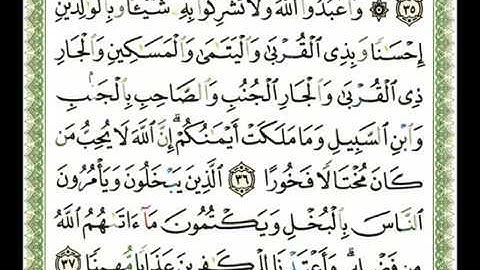 ﴿٣٥﴾ ۞ وَٱعْبُدُوا۟ ٱللَّهَ وَلَا تُشْرِكُوا۟ بِهِۦ شَيْـًٔا وَبِٱلْوَٰلِدَيْنِ
إِحْسَٰنًا وَبِذِى ٱلْقُرْبَىٰ وَٱلْيَتَٰمَىٰ وَٱلْمَسَٰكِينِ وَٱلْجَارِ
ذِى ٱلْقُرْبَىٰ وَٱلْجَارِ ٱلْجُنُبِ وَٱلصَّاحِبِ بِٱلْجَنۢبِ
وَٱبْنِ ٱلسَّبِيلِ وَمَا مَلَكَتْ أَيْمَٰنُكُمْ ۗ إِنَّ ٱللَّهَ لَا يُحِبُّ مَن
كَانَ مُخْتَالًا فَخُورًا ﴿٣٦﴾ ٱلَّذِينَ يَبْخَلُونَ وَيَأْمُرُونَ
ٱلنَّاسَ بِٱلْبُخْلِ وَيَكْتُمُونَ مَآ ءَاتَىٰهُمُ ٱللَّهُ
مِن فَضْلِهِۦ ۗ وَأَعْتَدْنَا لِلْكَٰفِرِينَ عَذَابًا مُّهِينًا ﴿٣٧﴾